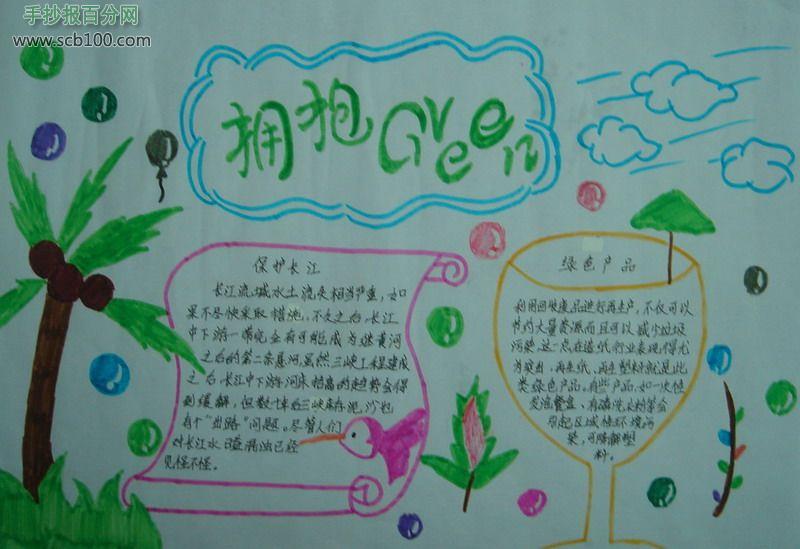 手抄报百分网
www.scb100.com
拥抱Green
保护长江
长江流域水土流失相当严重,如
果不尽快采取措施,不久之后,长江
中下游一带完全有可能成为继黄河
之后的第二条悬河,虽然三峡工程建成
之后,长江中下游河床抬高的趋势会得
到缓解,但数十年后三峡库存泥沙也
有个“出路”问题。尽管人们
对长江水泥混浊已经
见怪不怪。
绿色产品
利用回收废品进行再生产,不仅可以
节约大量资源而且可以减少垃圾
污染,这一点在造纸行业表现得尤
为突出,再生纸,再生塑料就是此
类绿色产品。有些产品,如一次性
发泡餐盒、有磷洗衣粉等会
引起区域性环境污
染,可降解塑
料。